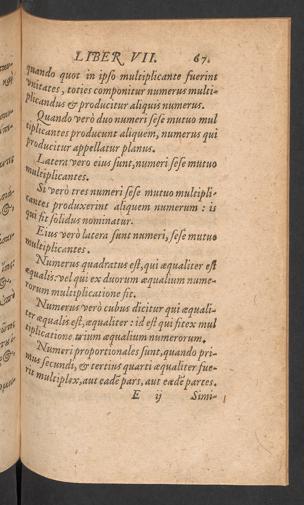 LIBER VII. 67.
quando quot in ipso multiplicante fuerint
vnitates, toties componitur numerus multi-
plicandus & producitur aliquis numerus.
Quando verò duo numeri sese mutuo mul
tiplicantes producunt aliquem, numerus qui
producitur appellatur planus.
Latera vero eius sunt, numeri sese mutuo
multiplicantes.
Si verò tres numeri sese mutuo multipli-
cantes produxerint aliquem numerum : is
qui fit solidus nominatur.
Eius verò latera sunt numeri, sese mutuo
multiplicantes.
Numerus quadratus est, qui æqualiter est
æqualis: vel qui ex duorum æqualium nume-
rorum multiplicatione fit.
Numerus verò cubus dicitur qui æquali-
ter æqualis est, æqualiter : id est qui fit ex mul
tiplicatione trium æqualium numerorum.
Numeri proportionales sunt, quando pri-
mus secundi, & tertius quarti æqualiter fue-
rit multiplex, aut eadē pars, aut eædē partes.
E ij Simi-